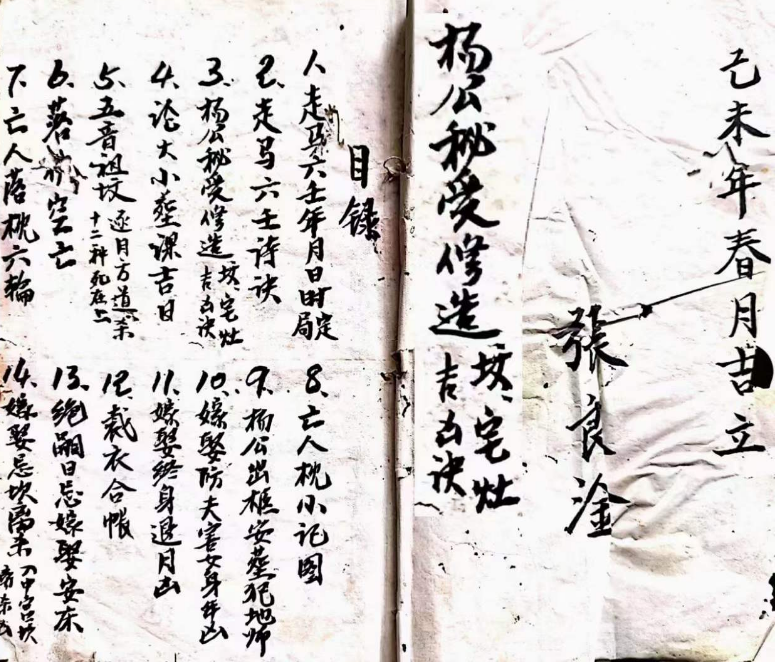 己未年春月吉立
張良淦
杨公秘受修造坟宅灶吉凶诀
目録
1、走马六壬年月日时定局
2、走马六壬诗诀
3、杨公秘受修造坟宅灶吉凶诀
4、论大小塟课吉日
5、五音祖坟逐月方道杀十二种死在上
6、落 空亡
7、亡人落枕六輪
8、亡人枕小记图
9、杨公出柩安塟犯地师
10、嫁娶防夫害女身年凶
11、嫁娶终身退月凶
12、裁衣合帳
13、绝嗣日忌嫁娶安床
14、嫁娶忌坎离杀